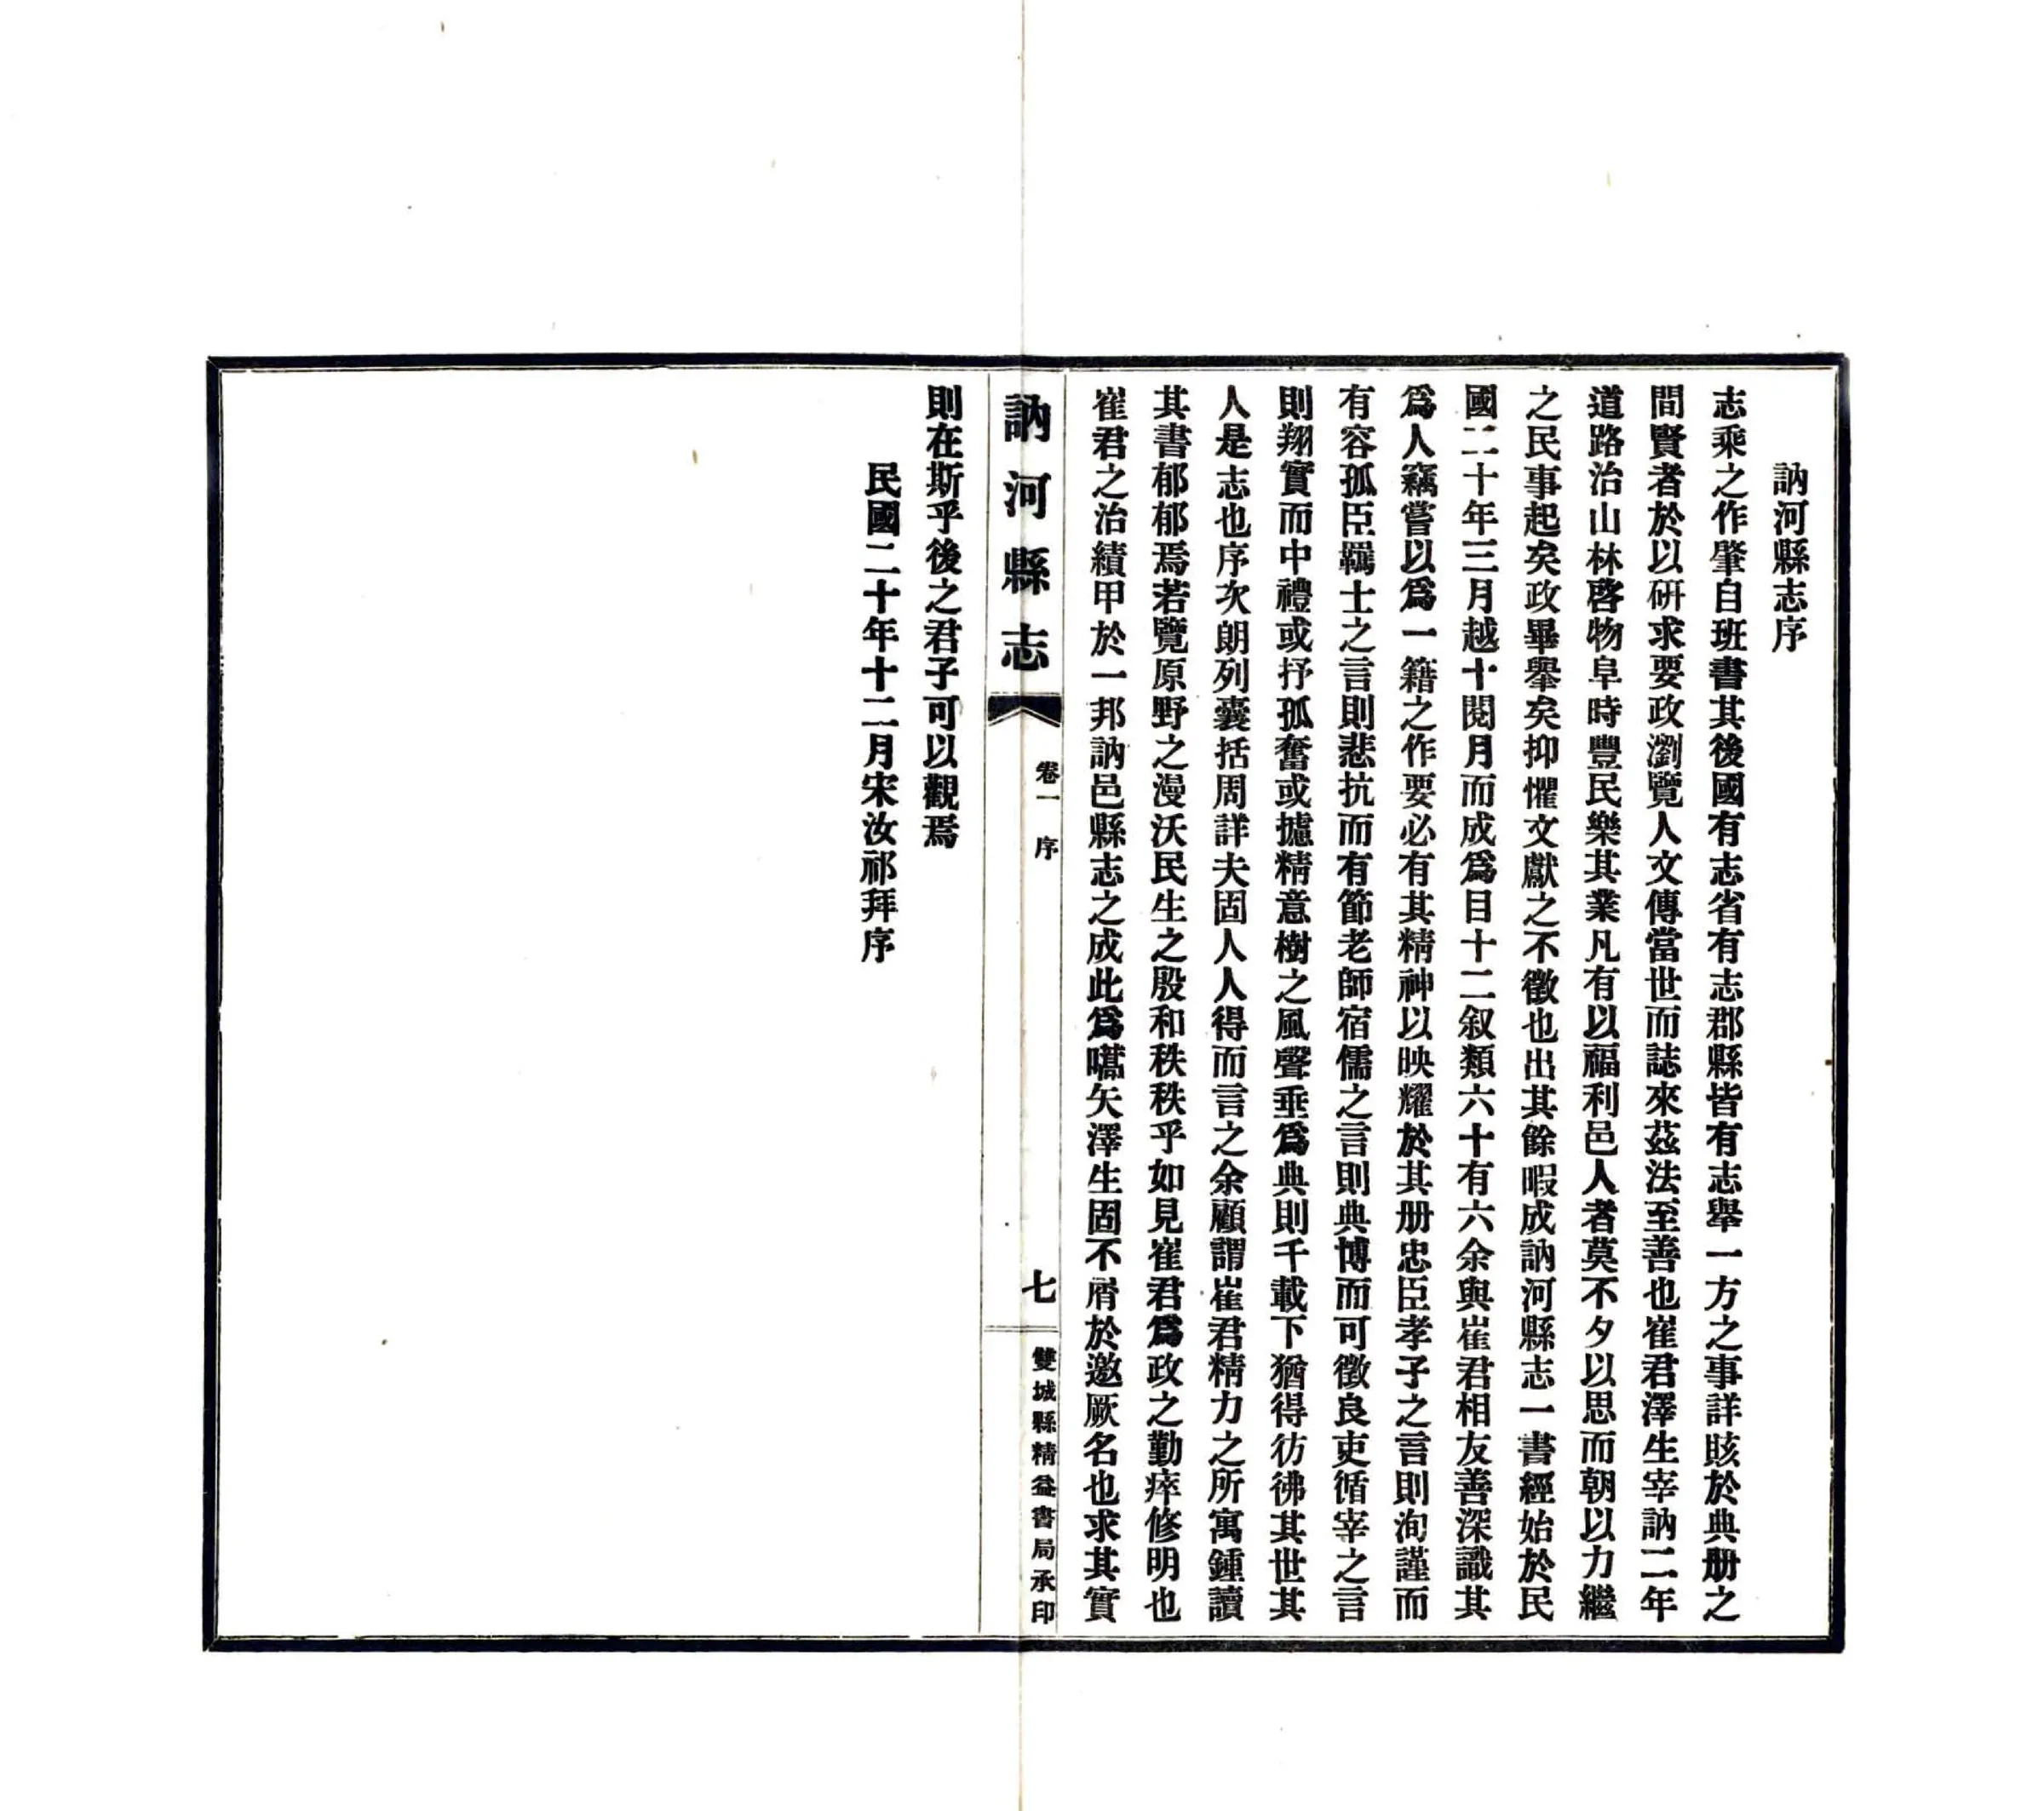 訥河縣志序
志乘之作肇自班書其後國有志省有志郡縣皆有志舉一方之事詳賅於典册之
間賢者於以研求要政瀏覽人文傳當世而誌來茲法至善也崔君澤生宰訥二年
道路治山林啓物阜時豐民樂其業凡有以福利邑人者莫不夕以思而朝以力繼
之民事起矣政畢舉矣抑懼文獻之不徵也出其餘暇成訥河縣志一書經始於民
國二十年三月越十閱月而成爲目十二叙類六十有六余與崔君相友善深識其
爲人竊嘗以爲一籍之作要必有其精神以映耀於其册忠臣孝子之言則洵謹而
有容孤臣羈士之言則悲抗而有節老師宿儒之言則典博而可徵良吏循宰之言
則翔實而中禮或抒孤奮或攄精意樹之風聲垂爲典則千載下猶得彷彿其世其
人是志也序次朗列囊括周詳夫固人人得而言之余顧謂崔君精力之所寓鍾讀
其書郁郁焉若覽原野之漫沃民生之殷和秩秩乎如見崔君爲政之勤瘁修明也
崔君之治績甲於一邦訥邑縣志之成此爲嚆矢澤生固不屑於邀厥名也求其實
訥河縣志
卷一 序
七
雙城縣精益書局承印
則在斯乎後之君子可以觀焉
民國二十年十二月宋汝祁拜序